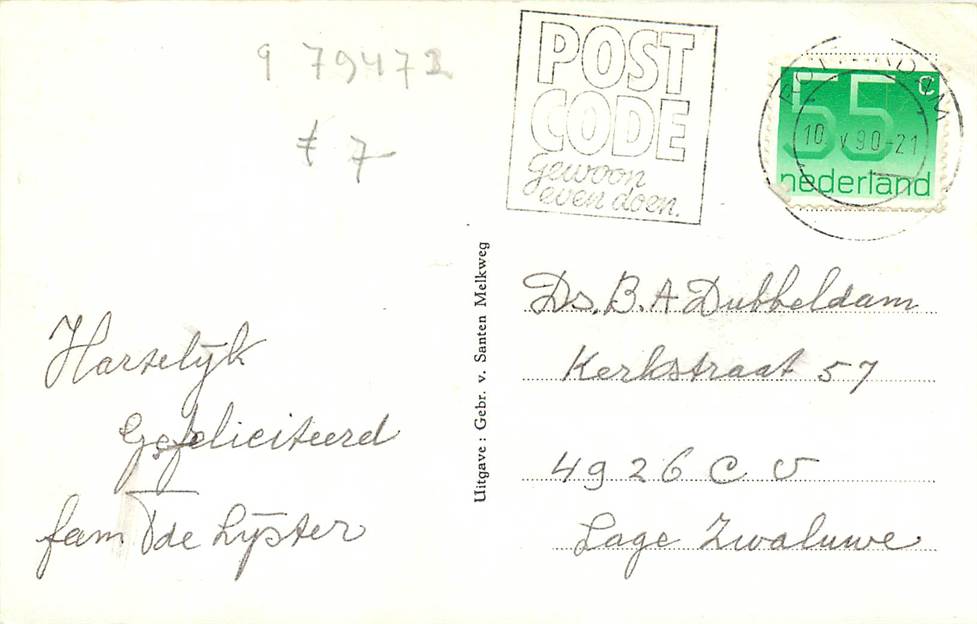 9 79473
POST
CODE
gewoon
even doen.
ROTTERDAM
10 V 90-21
55 c
nederland
7
Uitgave: Gebr. v. Santen Melkweg
Hartelijk
Gefeliciteerd
fam de Lijster
Ds. B. A Dubbeldam
Kerkstraat 57
4926 C V
Lage Zwaluwe